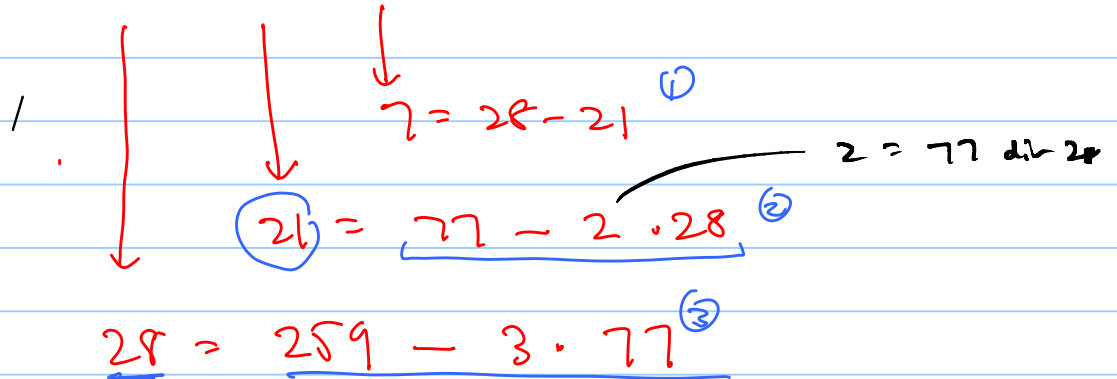 7 = 28 - 21 ①
2 = 77 div 28
21 = 77 - 2 · 28 ②
28 = 259 - 3 · 77 ③